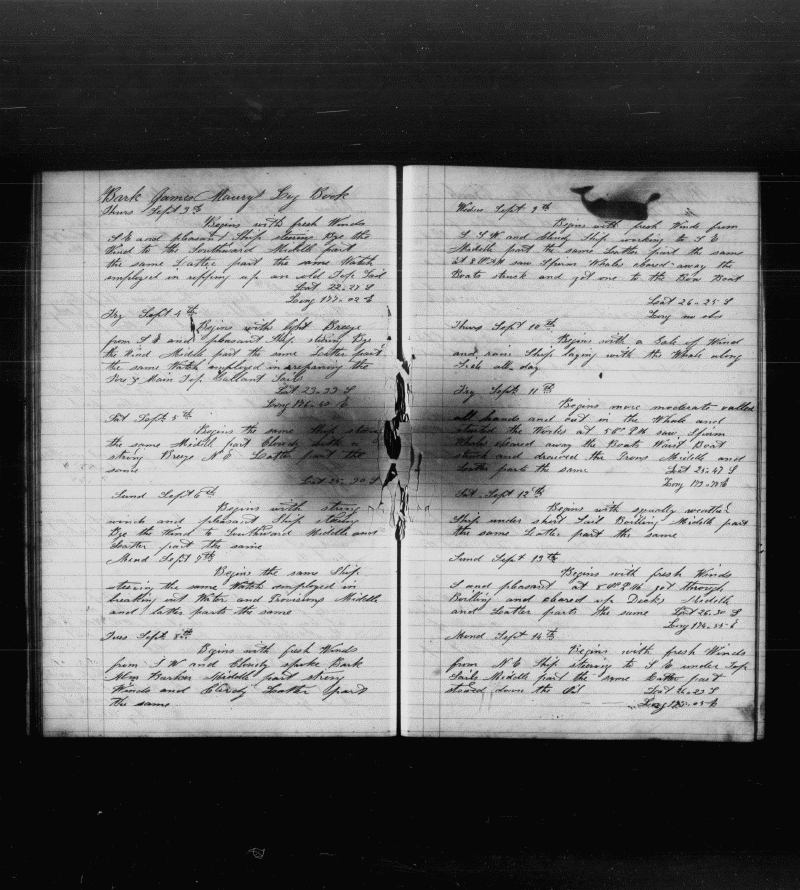 Bark James Maury Log Book
Thurs Sept 3th
Begins with fresh Winds
S E and pleasant Ship steering Bye the
Wind to the Southward Middle part
the same Latter part the same Watch
employed in ripping up an old Top Sail
Lat 22-27 S
Long 177-02 E
Fry Sept 4th
Begins with light Breeze
from S E and pleasant Ship stering Bye
the Wind Middle part the same Latter part
the same Watch employed in repairing the
Fore & Main Top Gallant Sails
Lat 23-33 S
Long 176-50 E
Sat Sept 5th
Begins the same Ship
the same Middle part Cloudy with a
strong Breeze N E Latter part the
same
Lat 25-30 S
Sund Sept 6th
Begins with strong
winds and pleasant Ship
Bye the Wind to Southward Middle and
Latter part the same
Mond Sept 7th
Begins the same Ship
steering the same Watch employed in
breaking out Water and Provisions Middle
and latter parts the same
Tues Sept 8th
Begins with fresh Winds
from S W and Cloudy spoke Bark
Barker Middle part strong
Winds and Cloudy Latter part
the same
Wednes Sept 9th
Begins with fresh Winds from
S S W and Ship working to S E
Middle part the same Latter part the same
at saw Sperm Whales cleared away the
Boats struck and got one to the Bow Boat
Lat 26-25 S
Long no obs
Thurs Sept 10th
Begins with a Gale of Wind
and rain Ship laying with the Whale along
Side all day
Fry Sept 11th
Begins more moderate called
all hands and cut in the Whale and
started the Works at saw Sperm
Whale cleared away the Boats Waist Boat
struck and the Irons Middle and
Latter parts the same Lat 25-47 S
Long
Sat Sept 12th
Begins with squally weather
Ship under short Sail Boiling Middle part
the same Latter part the same
Sund Sept 13th
Begins with fresh Winds
S and pleasant at got through
Boiling and cleared up Decks Middle
and Latter parts the same Lat 26-30 S
Long 174-55 E
Mond Sept 14th
Begins with fresh Winds
from N E Ship steering to S E under Top
Sails Middle part the same Latter part
stowed down the Oil Lat 26-23 S
Long